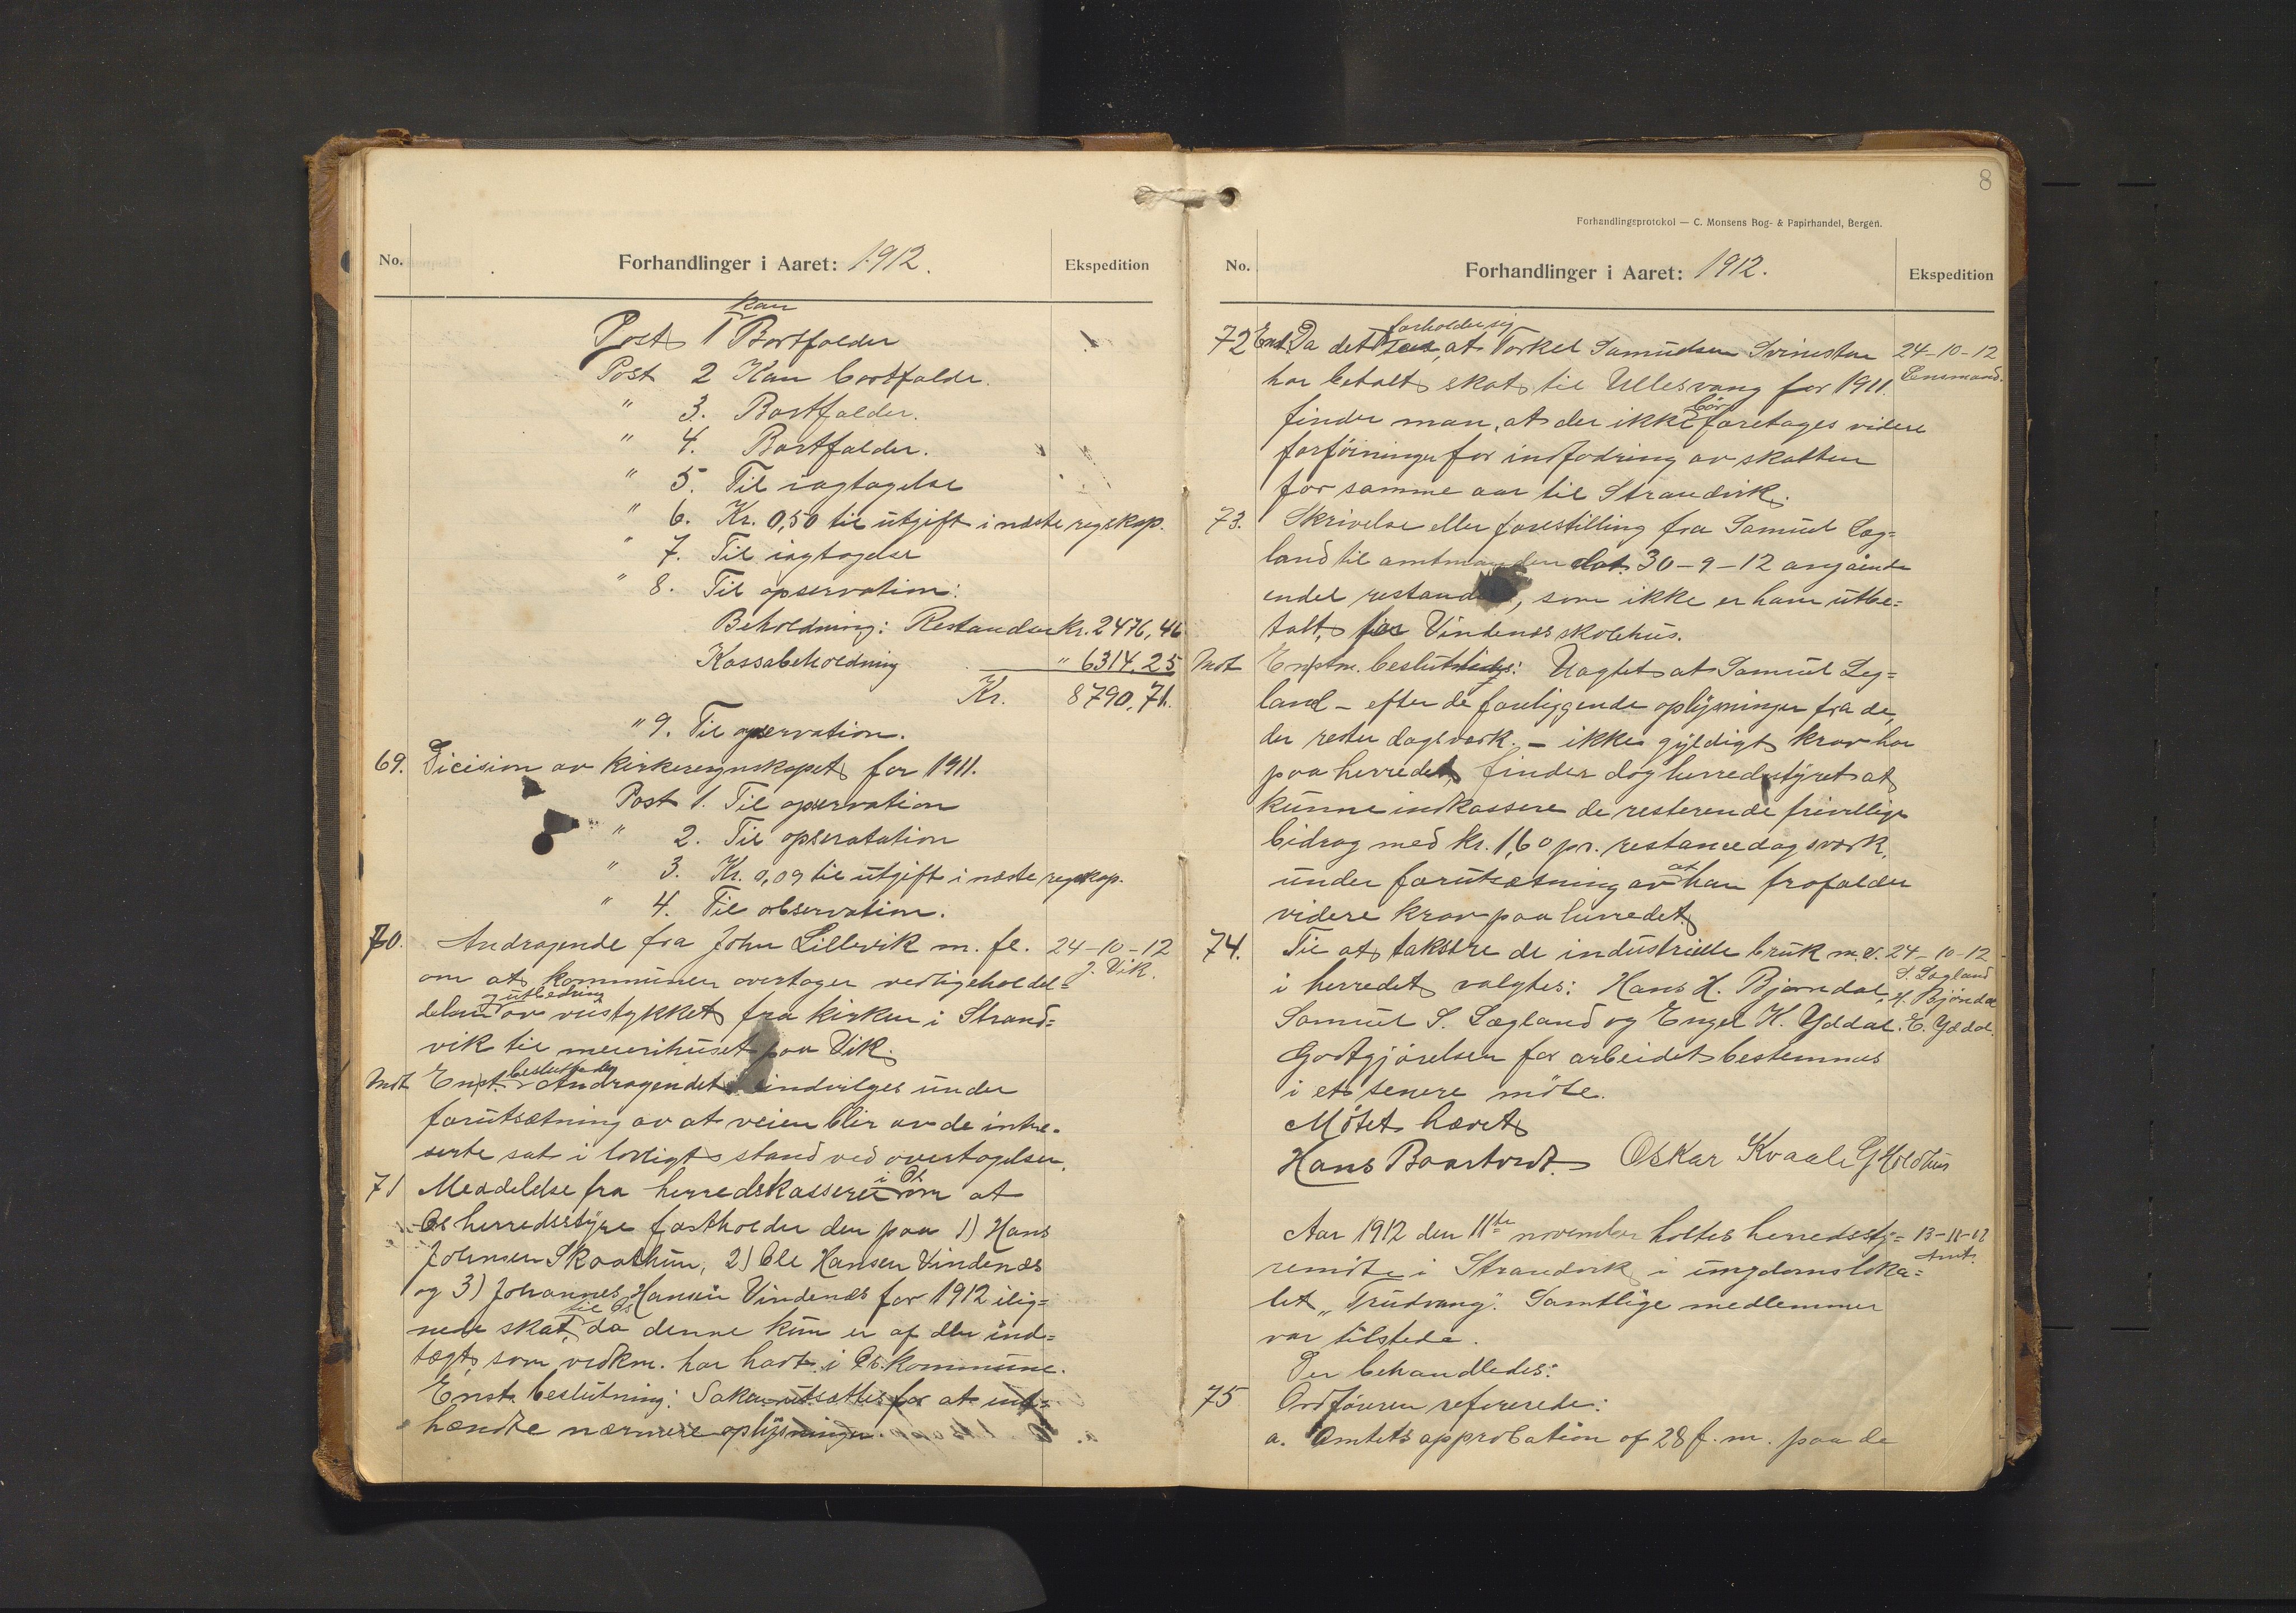 No.
Forhandlinger i Aaret: 1912.
Ekspedition
kan
Post 1 Bortfalder
Post 2 Kan bortfalde.
" 3. Bortfalder.
" 4. Bortfalder.
" 5. Til iagtagelse
" 6. Kr. 0,50 til utgift i næste regskap.
" 7. Til iagtagelse
" 8. Til opservation:
Beholdning: Restander Kr. 2476,46
Kassabeholdning " 6314,25
Kr. 8790,71.
" 9. Til opservation.
69. Dicision av kirkeregnskapet for 1911.
Post 1. Til opservation
" 2. Til opseratation
" 3. Kr. 0,09 til utgift i næste regskap.
" 4. Til observation.
70. Andragende fra John Lillevik m. fl. 24-10-12
om at kommunen overtager vedligeholdel= J. Vik.
og utbedring
delsen av veistykket fra kirken i Strand=
vik til meierihuset paa Vik.
besluttedes
Mdt Enst. Andragendet indvilges under
forutsætning av at veien blir av de intre-
serte sat i lovligt stand ved overtagelsen.
71 Meddelelse fra herredskasserer i Os om at
Os herredsstyre fastholder den paa 1) Hans
Johnsen Skaathun, 2) Ole Hansen Vindenes
og 3) Johannes Hansen Vindenes for 1912 ilig=
til Os
nede skat, da denne kun er af den ind=
tægt, som vedkm. har havt i Os kommune.
Enst. beslutning: Saken utsættes for at ind=
hændte nærmere oplysninger.
8
Forhandlingsprotokol — C. Monsens Bog- & Papirhandel, Bergen.
No.
Forhandlinger i Aaret: 1912.
Ekspedition
forholder sig
72 Enst. Da det saa, at Torkel Samudsen Svinestan 24-10-12
har betalt skat til Ullesvang for 1911. Lensmand.
bör
finder man, at der ikke foretages videre
forföininger for indfodring av skatten
for samme aar til Strandvik.
73. Skrivelse eller forestilling fra Samuel Løg=
land til amtmanden dat. 30-9-12 angående
endel restander, som ikke er ham utbe=
talt, for Vindenes skolehus.
Mdt Enstm. beslutning: Uagtet at Samuel Løg=
land - efter de foreliggende oplysninger fra de,
der rester dagsverk. - ikke gyldigt krav har
paa herredet, finder dog herredsstyret at
kunne indkassere de resterende frivillige
bidrag med kr. 1,60 pr. restancedagsverk,
under forutsætning av at han frafalder
videre krav paa herredet.
74. Til at taksere de industrielle bruk m.v. 24-10-12
i herredet valgtes: Hans H. Bjørndal, S. Lægland
H. Bjørndal
Samuel S. Lægland og Engel K. Yddal. E. Yddal.
Godtgjörelsen for arbeidet bestemmes
i et senere möte.
Mötet hævet
Hans Baartvedt. Oskar Kvaale G Holdhus
Aar 1912 den 11te november holtes herredssty= 13-11-12
remöte i Strandvik i ungdomsloka= Amt.
let „Trudvang". Samtlige medlemmer
var tilstede.
Der behandledes:
75 Ordföreren refererede:
a. Amtets approbation af 28 f. m. paa de